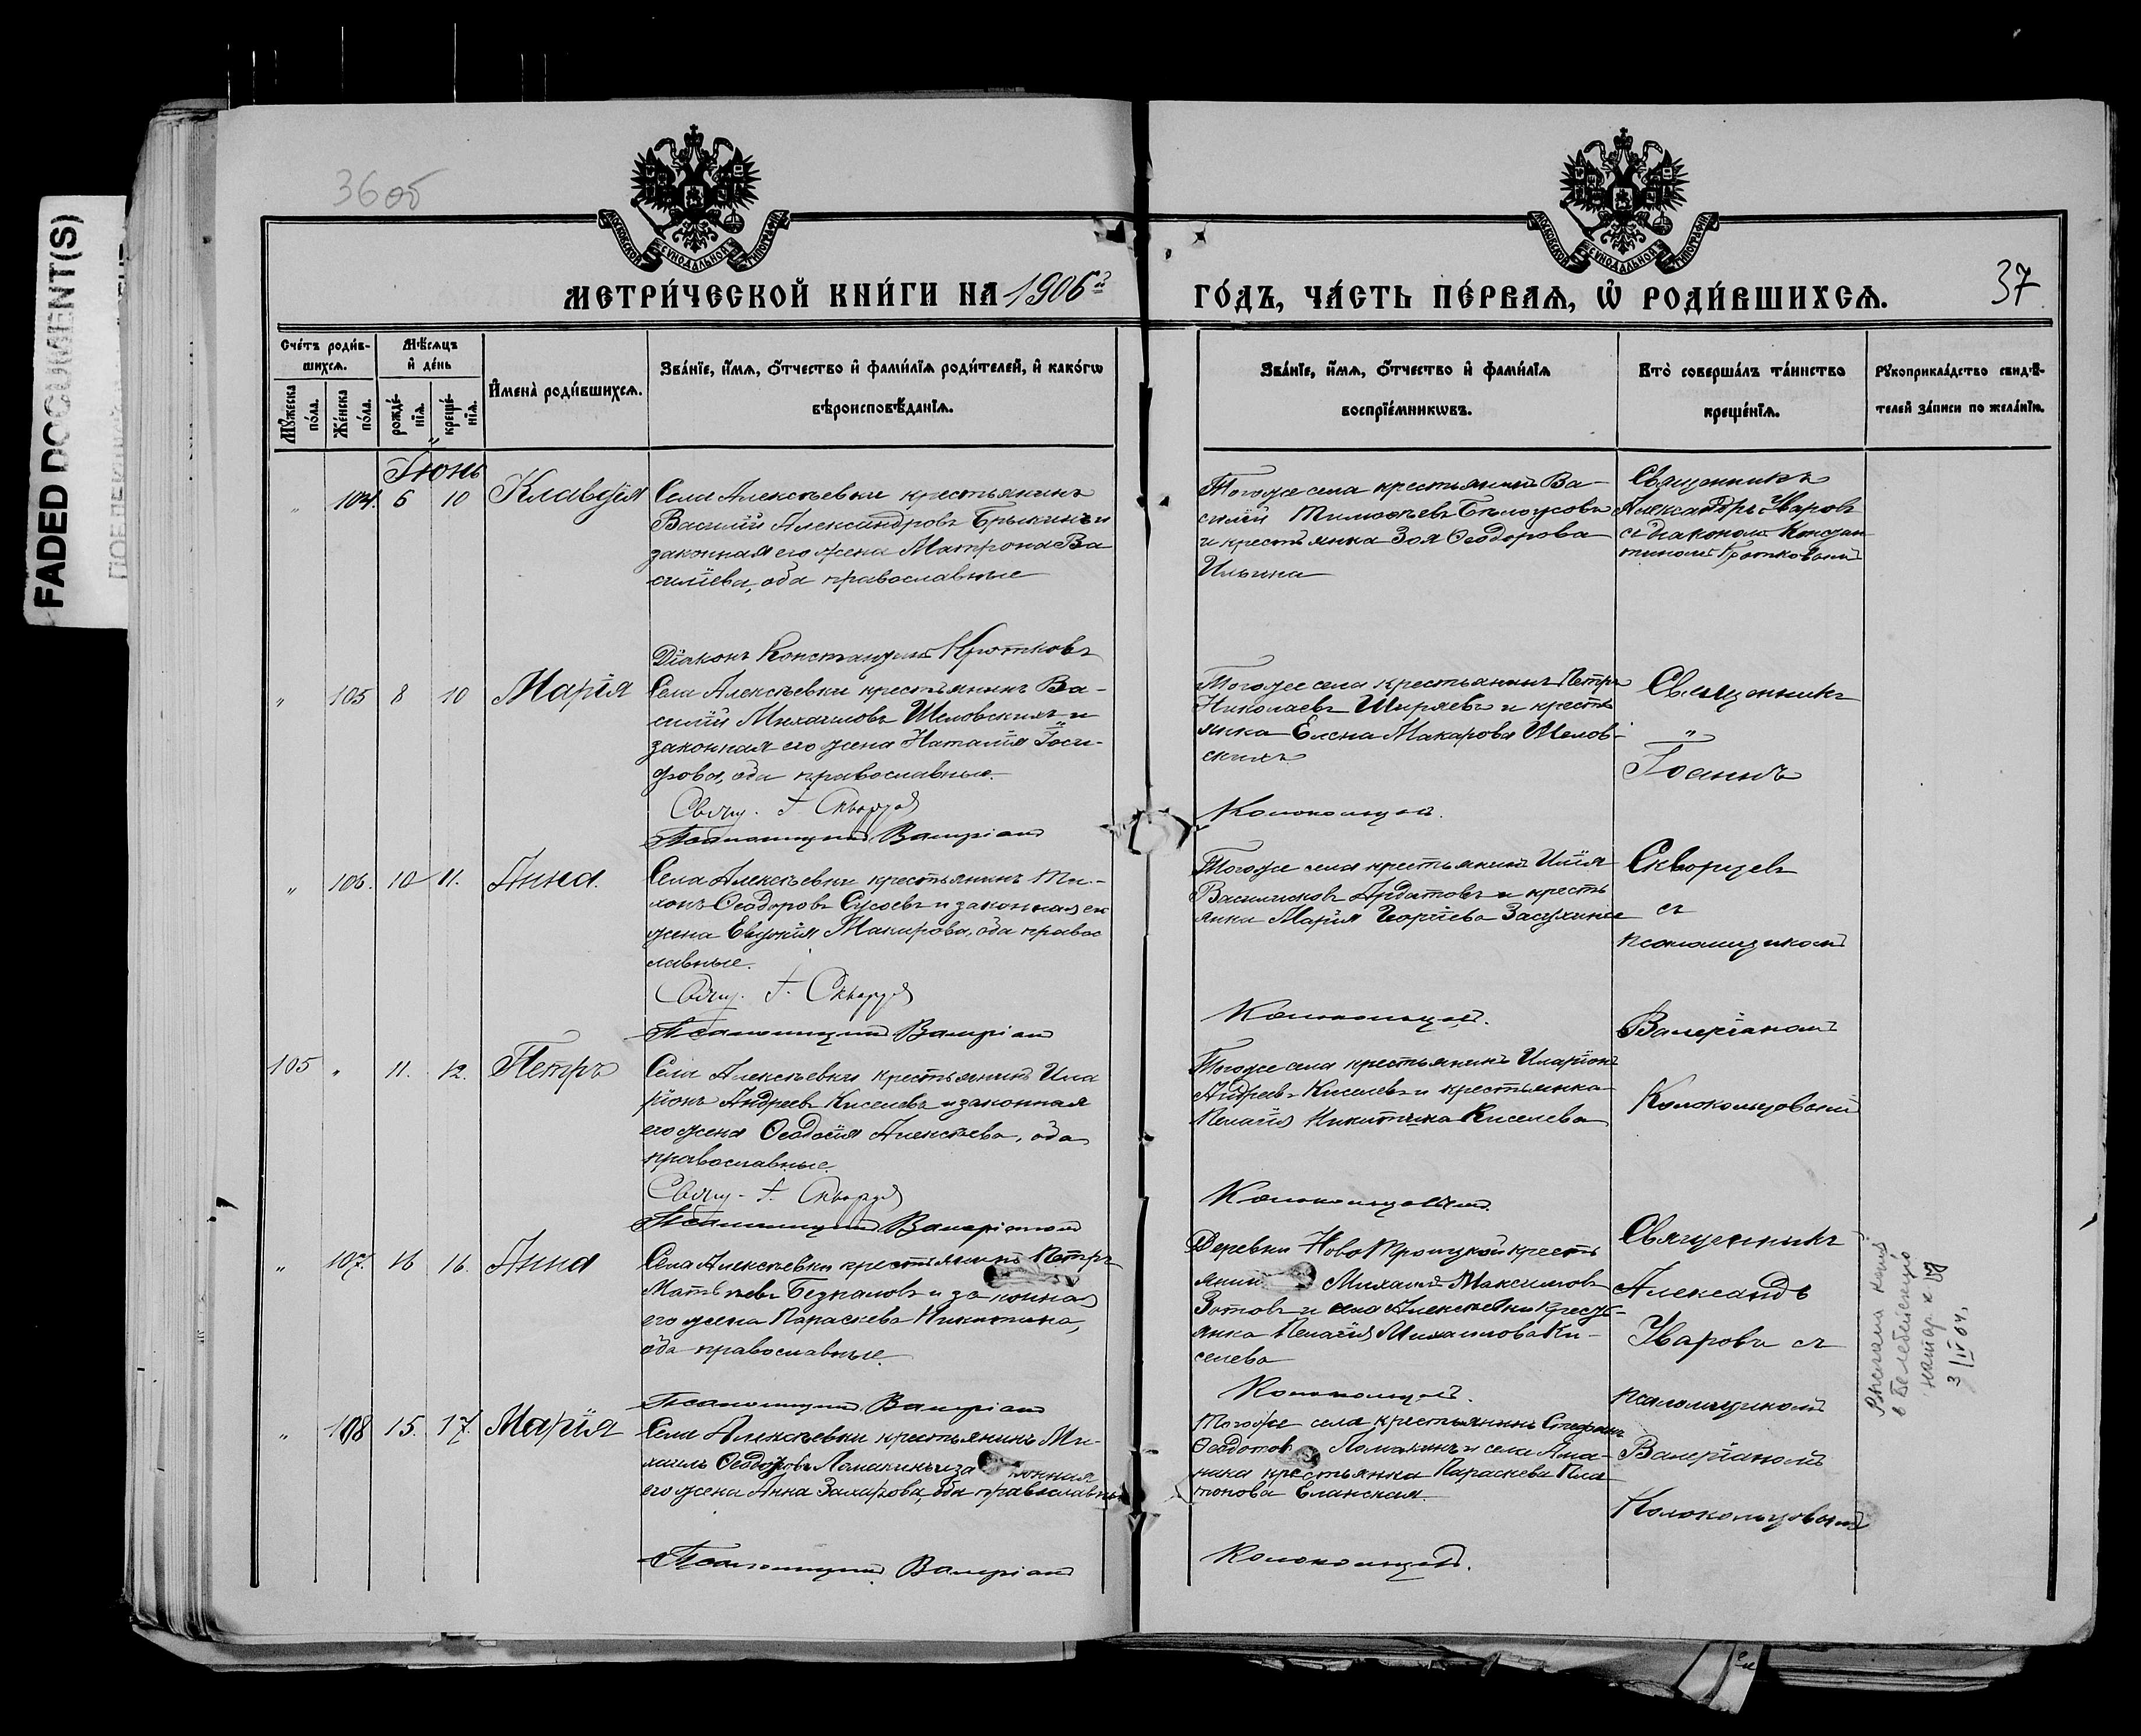 FADED DOCUMENT(S)
36 об
37
МОСКОВСКОЙ СѴНОДАЛЬНОЙ ТИПОГРАФІИ
МОСКОВСКОЙ СѴНОДАЛЬНОЙ ТИПОГРАФІИ
МЕТРИ́ЧЕСКОЙ КНИ́ГИ НА 1906й ГО́ДЪ, ЧА́СТЬ ПЕ́РВАѦ, Ѽ РОДИ́ВШИХСѦ.
Сче́тъ роди́в-
шихсѧ.
Мꙋ́жеска по́ла.
Же́нска по́ла.
Мѣ́сѧцъ
и҆ де́нь
рожде́-
нїѧ.
креще́-
нїѧ.
И҆мена̀ роди́вшихсѧ.
Зва́нїе, и҆́мѧ, ѻ҆́тчество и҆ фами́лїѧ роди́телей, и҆ како́гѡ
вѣроисповѣ́данїѧ.
Зва́нїе, и҆́мѧ, ѻ҆́тчество и҆ фами́лїѧ
воспрїе́мникѡвъ.
Кто̀ соверша́лъ та́инство
креще́нїѧ.
Рꙋкоприкла́дство свидѣ́-
телей за́писи по жела́нїю.
Іюнь
" 104. 6 10 Клавдія
Села Алексѣевки крестьянинъ
Василій Александровъ Брыкинъ и
законная его жена Матрона Ва
силіева, оба православные
Тогоже села крестьянинъ Ва-
силій Тимоѳѣевъ Бѣлоусовъ
и крестьянка Зоя Ѳеодорова
Ильина
Священникъ
Александръ Уваровъ
съ діакономъ Констан
тиномъ Кротковымъ
Діаконъ Константинъ Кротковъ
" 105 8 10 Марія
Села Алексѣевки крестьянинъ Ва-
силій Михаиловъ Шеловскихъ и
законная его жена Наталія Іоси-
фова, оба православные.
Свящ. І. Скворцовъ
Псаломщикъ Валеріанъ
Тогоже села крестьянинъ Петръ
Николаевъ Ширяевъ и кресть
янка Елена Макарова Шелов-
скихъ
Колокольцевъ.
Священникъ
Іоаннъ
" 106. 10 11. Анна.
Села Алексѣевки крестьянинъ Ти-
хонъ Ѳеодоровъ Сусоевъ и законная его
жена Евдокія Макарова, оба правос
лавные.
Свящ. І. Скворцовъ
Псаломщикъ Валеріанъ
Тогоже села крестьянинъ Илія
Василиковъ Ардатовъ и кресть
янка Марія Георгіева Засухина
Колокольцевъ.
Скворцевъ
съ
псаломщикомъ
Валеріаномъ
105 " 11. 12. Петръ
Села Алексѣевки крестьянинъ Ила
ріонъ Андреевъ Киселевъ и законная
его жена Ѳеодосія Алексѣева, оба
православные.
Свящ. І. Скворцовъ
Псаломщикъ Валеріанъ
Тогоже села крестьянинъ Иларіонъ
Андреевъ Киселевъ и крестьянка
Пелагія Никитина Киселева
Колокольцевымъ
Колокольцевъ.
" 107. 16 16. Анна
Села Алексѣевки крестьянинъ Петръ
Матвѣевъ Безпаловъ и законная
его жена Параскева Никитина,
оба православные.
Псаломщикъ Валеріанъ
Деревни Ново Троицкой кресть
янинъ Михаилъ Максимовъ
Зотовъ и села Алексѣевки крестья-
янка Пелагія Михаилова Ки-
селева
Колокольцевъ.
Священникъ
Александъ
Уваровъ съ
псаломщикомъ
" 108 15. 17. Марія
Села Алексѣевки крестьянинъ Ми-
хаилъ Ѳеодоровъ Ломакинъ и законная
его жена Анна Захарова, оба православные
Псаломщикъ Валеріанъ
Тогоже села крестьянинъ Стефанъ
Ѳеодотовъ Ломакинъ и села Ама-
нака крестьянка Параскева Пла
тонова Еланская.
Колокольцевъ.
Валеріаномъ
Колокольцовымъ
в Белебейскую
нотар. к
3/IV 64.